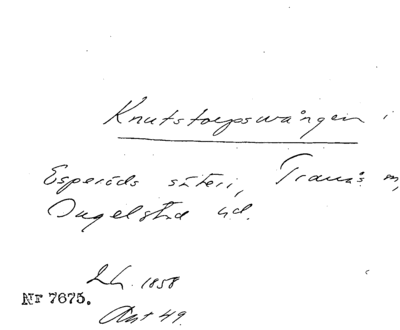 Knutstorpsvången i
Esperöds säteri, Tranås sn,
Ingelstad hd.
Lh. 1858
NF 7675.
Akt 49.